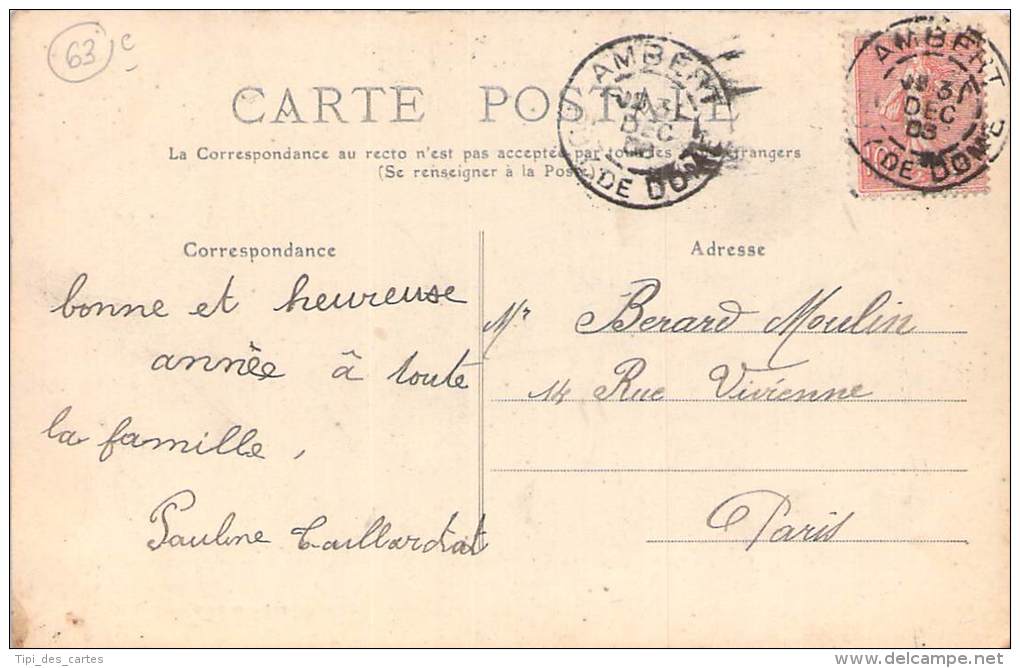 63 c
CARTE POSTALE
AMBERT
DEC
DE DOME
AMBERT
DEC
03
DE DOME
10
La Correspondance au recto n'est pas acceptée par tous les
(Se renseigner à la Poste
Correspondance
bonne et heureuse
année à toute
la famille,
Pauline
Adresse
Mr Berard Moulin
14 Rue Vivienne
Paris
Tipi_des_cartes
www.delcampe.net